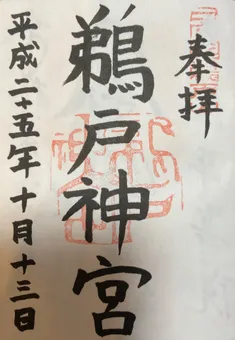 奉拝
鵜戸神宮
平成二十五年十月十三日